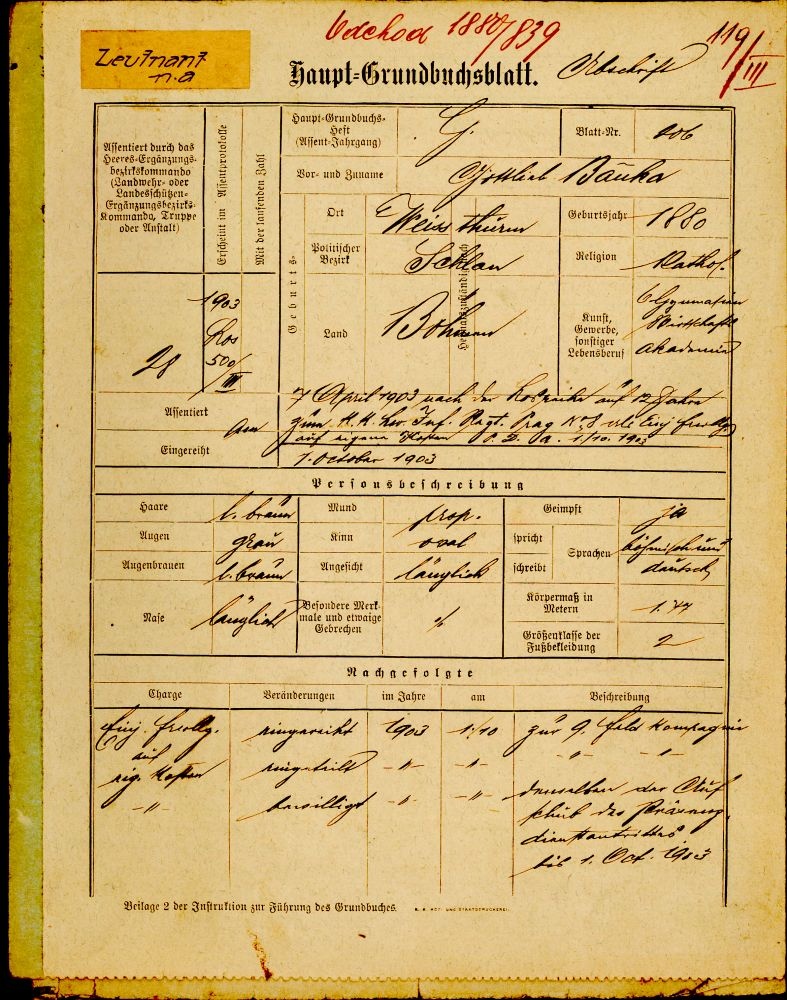 Odchod 1880/839
119/III
Leutnant
n. a
Haupt-Grundbuchsblatt.
Abschrift
Assentiert durch das
Heeres-Ergänzungs-
bezirkskommando
(Landwehr- oder
Landesschützen-
Ergänzungsbezirks-
Kommando, Truppe
oder Anstalt)
Erscheint im Assentprotokolle
Mit der laufenden Zahl
Haupt-Grundbuchs-
Heft
(Assent-Jahrgang)
G.
Blatt-Nr.
Vor- und Zuname
Gottlieb
Geburts-
Ort
Weiss thurm
Geburtsjahr
1880
Politischer
Bezirk
Schlan
Religion
Kathol.
Land
Böhmen
Heimatszuständig
Kunst,
Gewerbe,
sonstiger
Lebensberuf
Gymnasium
Wirtschafts
akademie
28
1903
Los
500/III
Assentiert
am
7 April 1903 nach der Losreihe auf 12 Jahre
zum K. K. Inf. Regt. Prag No 8 als Einj. freiwllg.
auf eigene Kosten P. D. a. 1/10. 1903
Eingereiht
1. October 1903
Personsbeschreibung
Haare
l. braun
Mund
prop.
Geimpft
ja
Augen
grau
Kinn
oval
spricht
schreibt
Sprachen
böhmisch und
deutsch
Augenbrauen
l. braun
Angesicht
länglich
Nase
länglich
Besondere Merk-
male und etwaige
Gebrechen
%
Körpermaß in
Metern
1.77
Größenklasse der
Fußbekleidung
2
Nachgefolgte
Charge
Veränderungen
im Jahre
am
Beschreibung
Einj. freiwllg.
eingereiht
1903
1./10
zur 9. Feld Kompagnie
auf
eig. Kosten
eingeteilt
-"-
-"-
-"-
-"-
-"-
bewilligt
-"-
-"-
demselben der Auf
schub des Präsenz
dienstantrittes
bis 1. Oct. 1903
Beilage 2 der Instruktion zur Führung des Grundbuches.
K. K. HOF- UND STAATSDRUCKEREI.